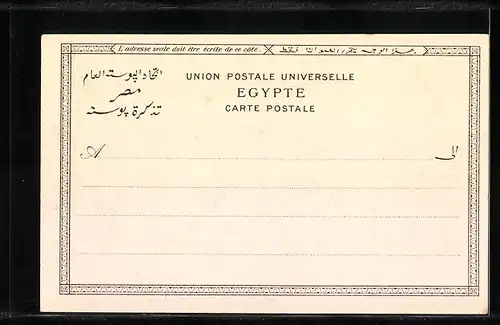 L'adresse seule doit être écrite de ce côté.
هذا الوجه تتحرر العنوان فقط
اتحاد البوسته العام
مصر
تذكرة بوسته
UNION POSTALE UNIVERSELLE
EGYPTE
CARTE POSTALE
A
الى